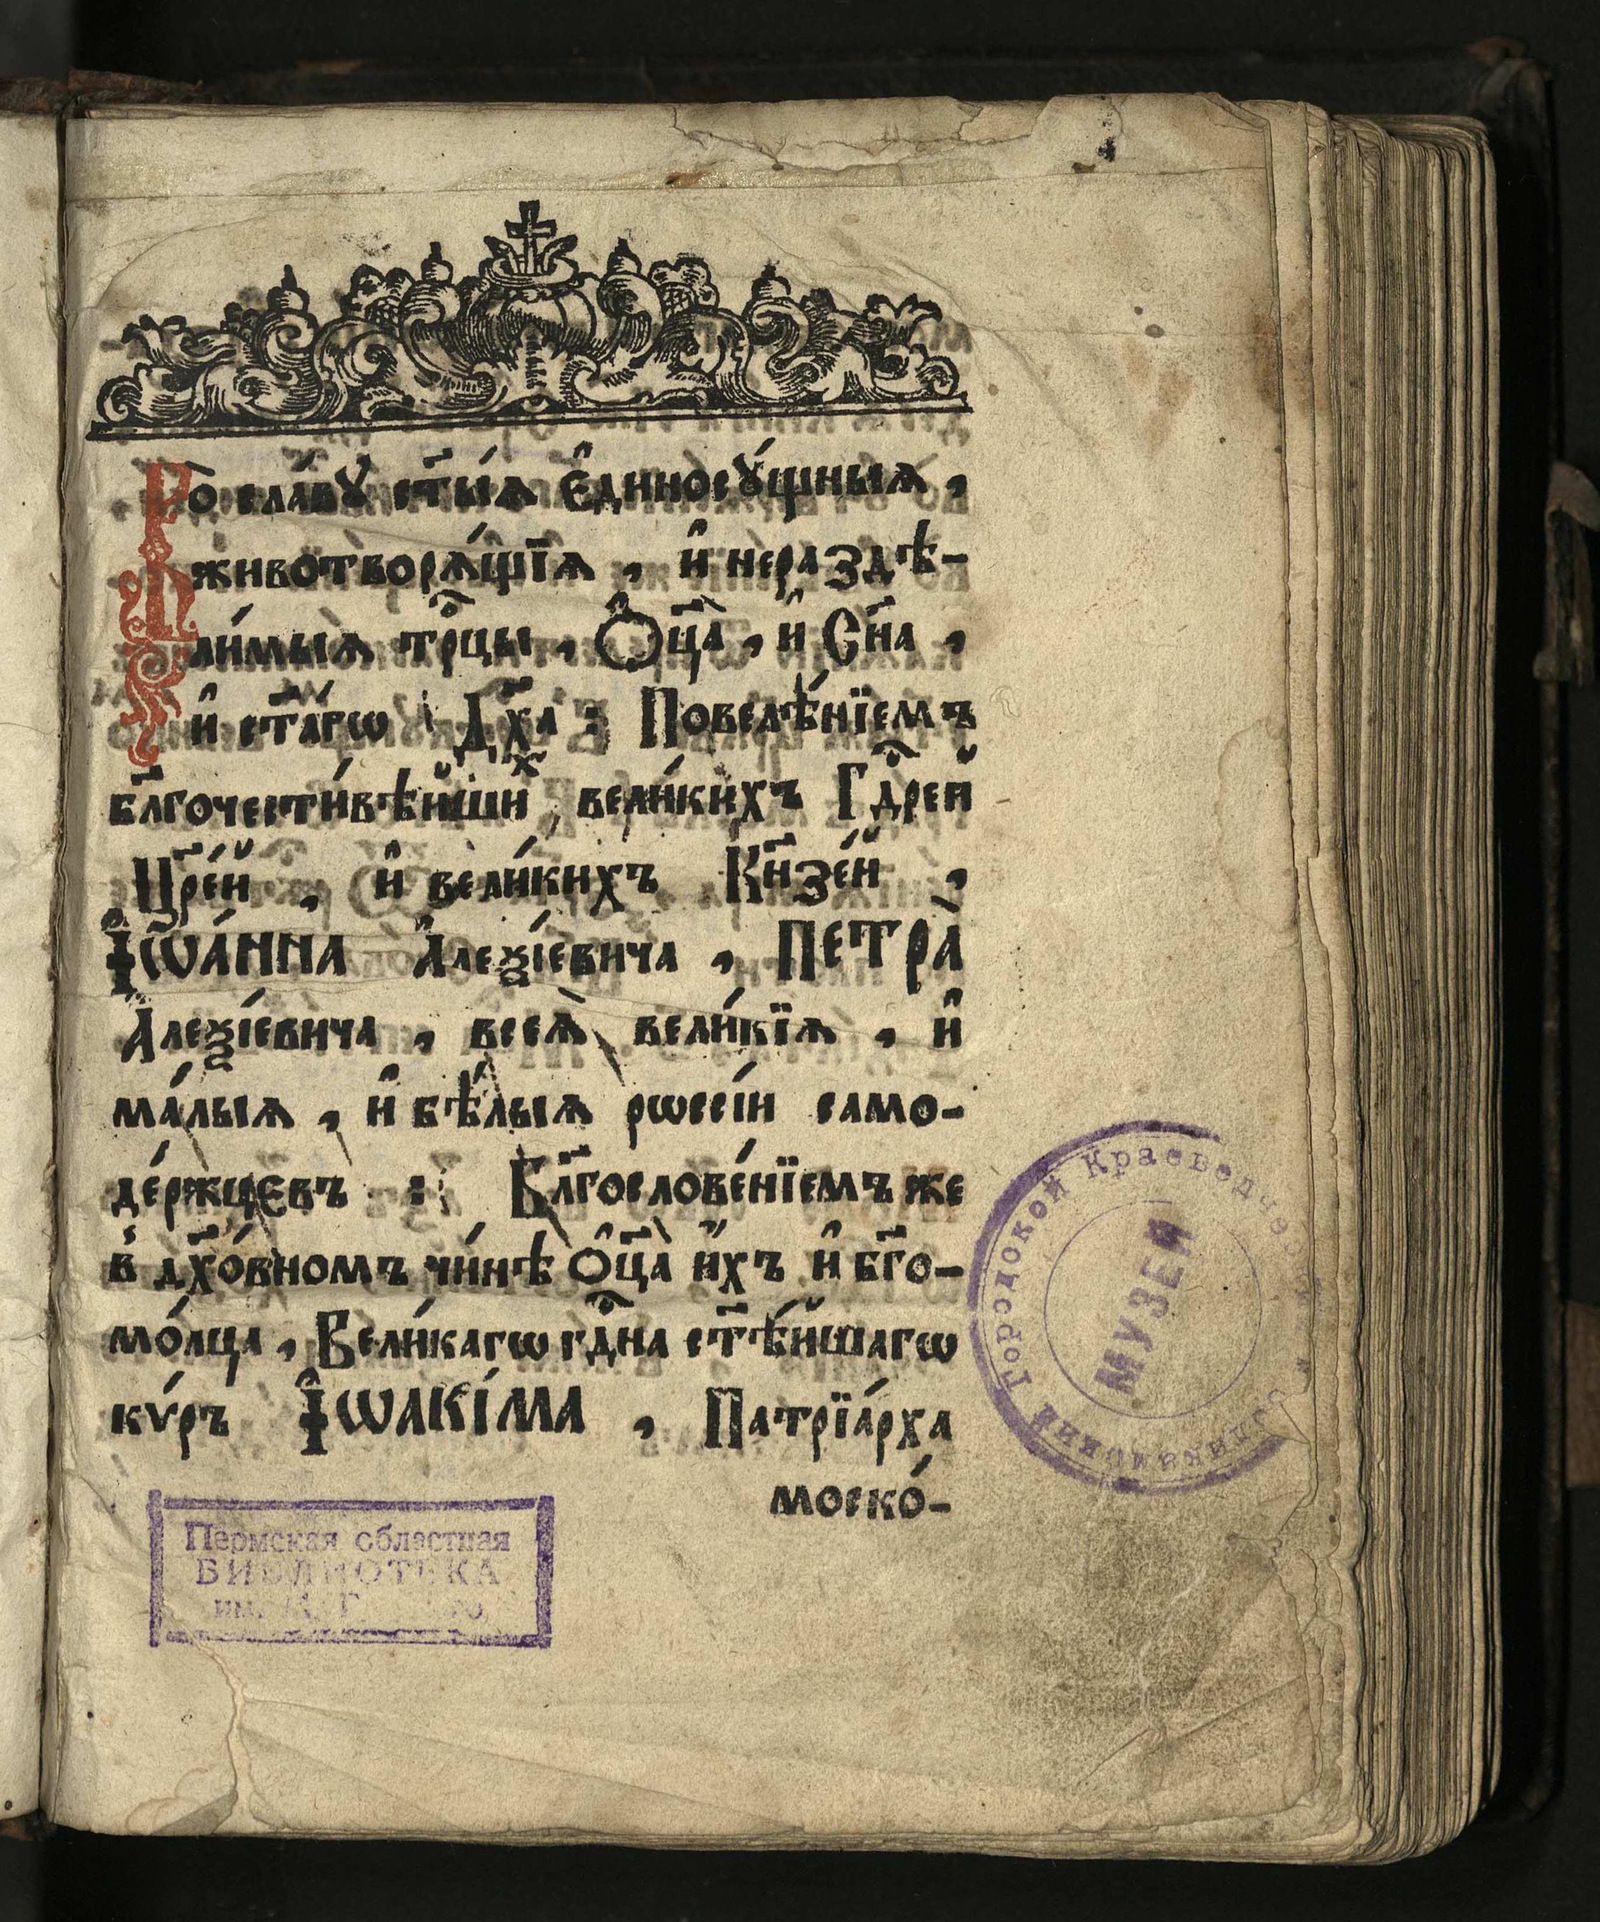 Во сла́вꙋ ст҃ы́ѧ є҆диносꙋ́щныѧ,
животворѧ́щїѧ, и҆ нераздѣ-
ли́мыѧ трⷪ҇цы, Ѻ҆ц҃а̀, и҆ Сн҃а,
и҆ ст҃а́гѡ Дх҃а: Повелѣ́нїемъ
бл҃гочести́вѣйшиⷯ вели́кихъ Гдⷭ҇рей
Цр҃е́й, и҆ вели́кихъ Кн҃зе́й,
І҆ѡа́нна А҆леѯі́евича, ПЕТРА̀
А҆леѯі́евича, всеѧ̀ вели́кїѧ, и҆
ма́лыѧ, и҆ бѣ́лыѧ рѡссі́и само-
де́ржцєвъ: Бл҃гослове́нїемъ же
в̾ дх҃о́вномъ чи́нѣ Ѻ҆ц҃а̀ и҆́хъ и҆ бг҃о-
мо́лца, Вели́кагѡ гдⷭ҇на ст҃ѣ́йшагѡ
кѵ́ръ І҆ѡакі́ма, Патрїа́рха
моско́-
Городской Краеведческий
МУЗЕЙ
Пермская областная
БИБЛИОТЕКА
им.